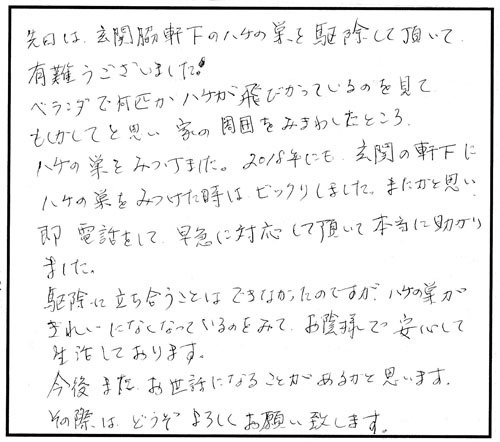 先日は、玄関脇軒下のハチの巣を駆除して頂いて、
有難うございました。
ベランダで何匹か、ハチが飛びかっているのを見て
もしかしてと思い 家の周囲をみまわしたところ、
ハチの巣をみつけました。2018年にも、玄関の軒下に
ハチの巣をみつけた時は ビックリしました。またかと思い、
即 電話をして、早急に対応して頂いて本当に助かり
ました。
駆除に立ち合うことは できなかったのですが、ハチの巣が
きれいになくなっているのをみて、お陰様で 安心して
生活しております。
今後また、お世話になることがあるかと思います。
その際は、どうぞ よろしくお願い致します。